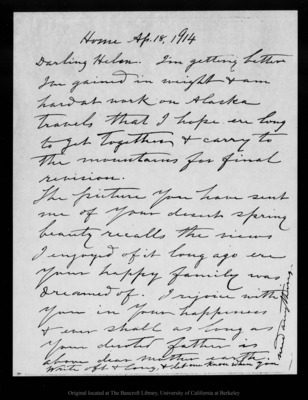 Home Ap. 18, 1914
Darling Helen. I'm getting better
I've gained in weight & am
hard at work on Alaska
travels that I hope ere long
to get together & carry to
the mountains for final
revision.
The picture you have sent
me of your desert spring
beauty recalls the views
I enjoyed of it long ago ere
your happy family was
dreamed of. I rejoice with
you in your happiness
& ever shall as long as
your devoted father is
above dear mother earth
Write oft & long, & let me know when you
need anything.
Original located at The Bancroft Library, University of California at Berkeley